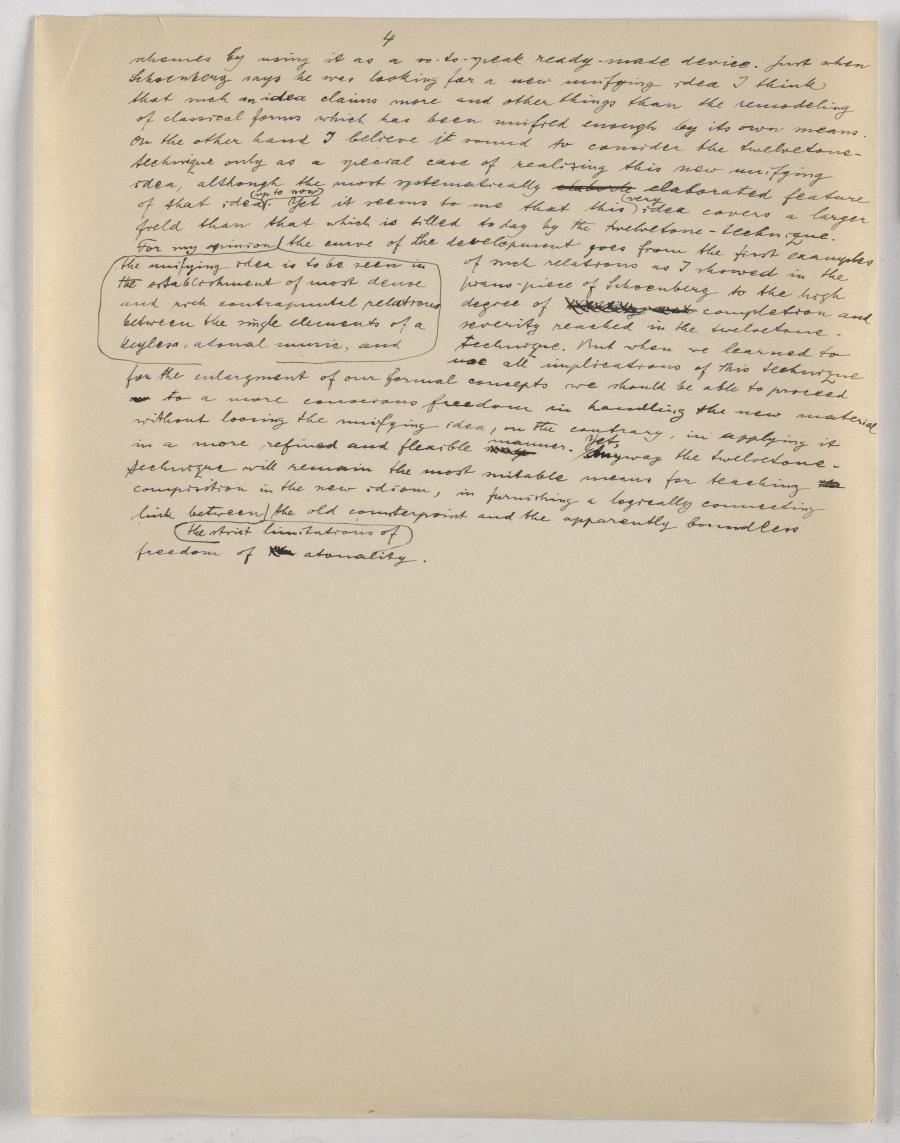 4
schemes by using it as a so-to-speak ready-made device. Just when
Schoenberg says he was looking for a new unifying idea I think
that such an idea claims more and other things than the remodeling
of classical forms which has been unified enough by its own means.
On the other hand I believe it sound to consider the twelvetone-
technique only as a special case of realizing this new unifying
idea, although the most systematically elaborate elaborated feature
of that idea (up to now). Yet it seems to me that this (very) idea covers a larger
field than that which is tilled to day by the twelvetone-technique.
For my opinion (the curve of the development goes from the first examples
the unifying idea is to be seen in
the establishment of most dense
and rich contrapuntal relations
between the single elements of a
keyless, atonal music, and
of such relations as I showed in the
piano-piece of Schoenberg to the high
degree of completion and
severity reached in the twelvetone-
technique. But when we learned to
use all implications of this technique
for the enlargment of our formal concepts we should be able to proceed
to a more conscious freedom in handling the new material
without loosing the unifying idea, on the contrary, in applying it
in a more refined and flexible way manner. Yet, Anyway the twelvetone-
technique will remain the most suitable means for teaching
composition in the new idiom, in furnishing a logically connecting
link between (the old counterpoint and the apparently boundless
the strict limitations of)
freedom of atonality.